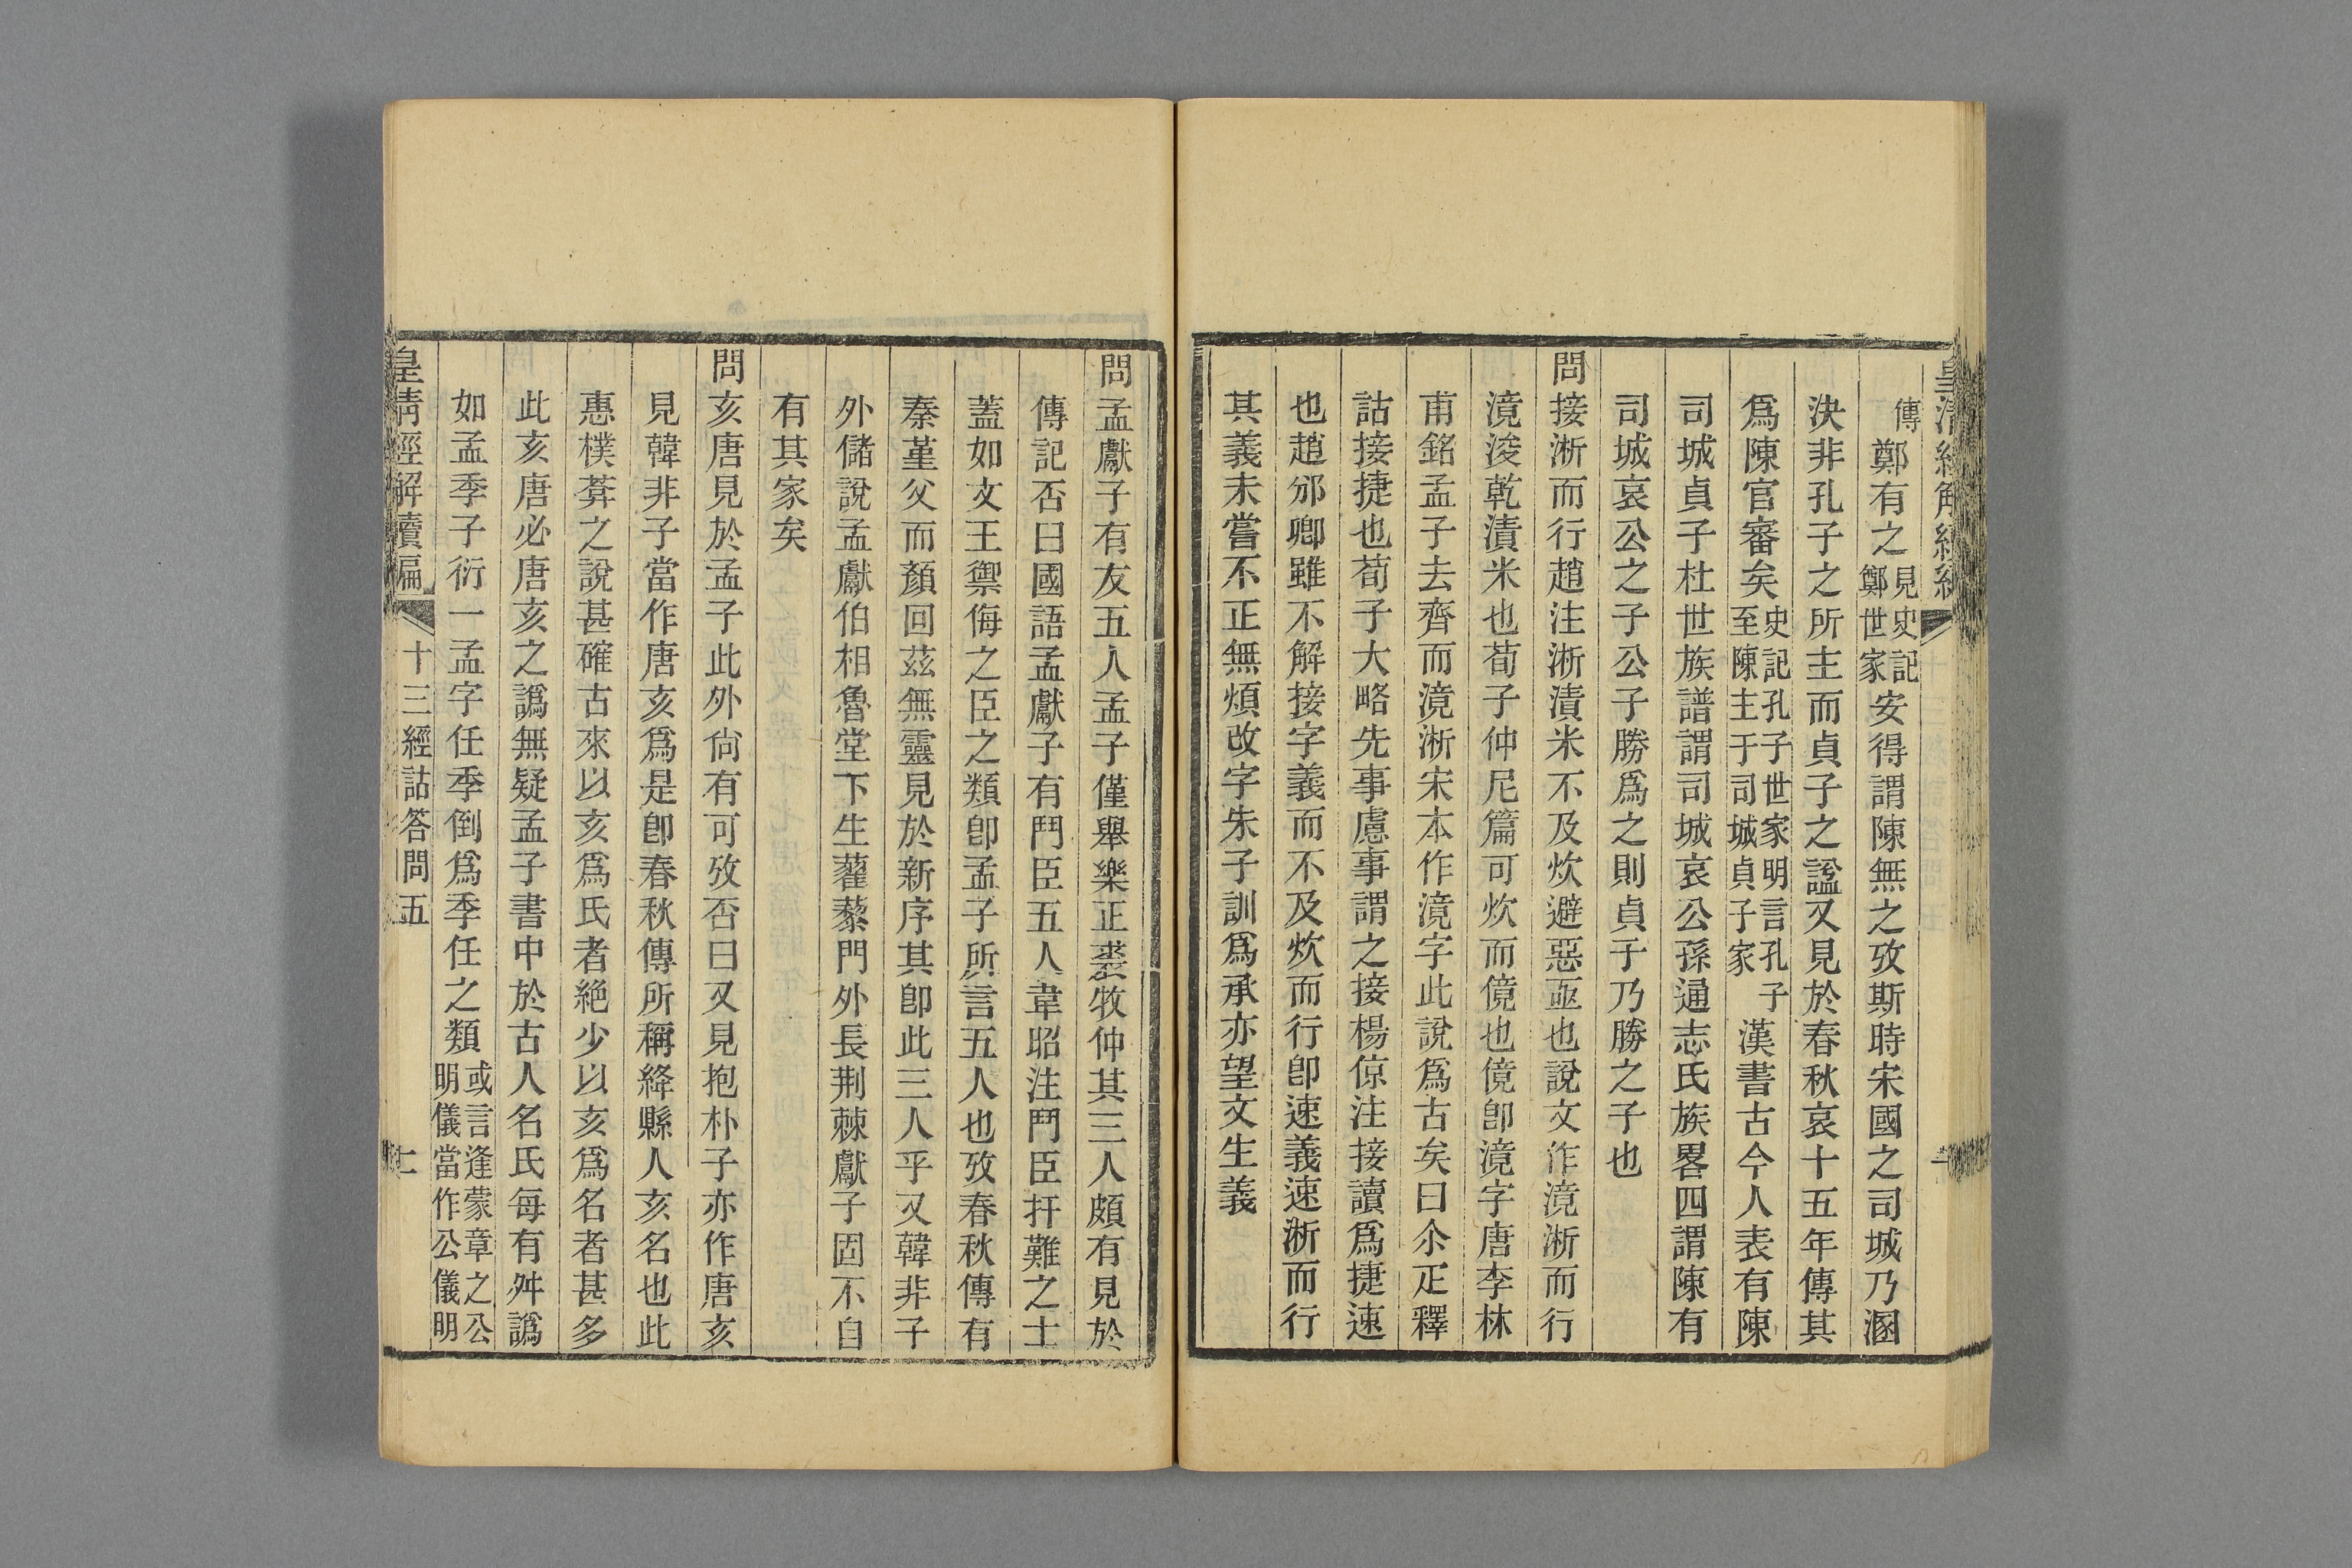 皇清經解續編
傳鄭有之見史記鄭世家安得謂陳無之攷斯時宋國之司城乃溷
決非孔子之所主而貞子之諡又見於春秋哀十五年傳其
爲陳官審矣史記孔子世家明言孔子至陳主于司城貞子家漢書古今人表有陳
司城貞子杜世族譜謂司城哀公孫通志氏族畧四謂陳有
司城哀公之子公子勝爲之則貞子乃勝之子也
問接淅而行趙注淅漬米不及炊避惡亟也說文作滰淅而行
滰浚乾漬米也荀子仲尼篇可炊而傹也傹卽滰字唐李林
甫銘孟子去齊而滰淅宋本作滰字此說爲古矣曰尒疋釋
詁接捷也荀子大略先事慮事謂之接楊倞注接讀爲捷速
也趙邠卿雖不解接字義而不及炊而行卽速義速淅而行
其義未嘗不正無煩改字朱子訓爲承亦望文生義
問孟獻子有友五人孟子僅舉樂正裘牧仲其三人頗有見於
傳記否曰國語孟獻子有鬥臣五人韋昭注鬥臣扞難之士
蓋如文王禦侮之臣之類卽孟子所言五人也攷春秋傳有
秦堇父而顏回茲無靈見於新序其卽此三人乎又韓非子
外儲說孟獻伯相魯堂下生藿藜門外長荆棘獻子固不自
有其家矣
問亥唐見於孟子此外尙有可攷否曰又見抱朴子亦作唐亥
見韓非子當作唐亥爲是卽春秋傳所稱絳縣人亥名也此
惠樸菴之說甚確古來以亥爲氏者絶少以亥爲名者甚多
此亥唐必唐亥之譌無疑孟子書中於古人名氏每有舛譌
如孟季子衍一孟字任季倒爲季任之類或言逢蒙章之公明儀當作公儀明
皇清經解續編 十三經詁答問五